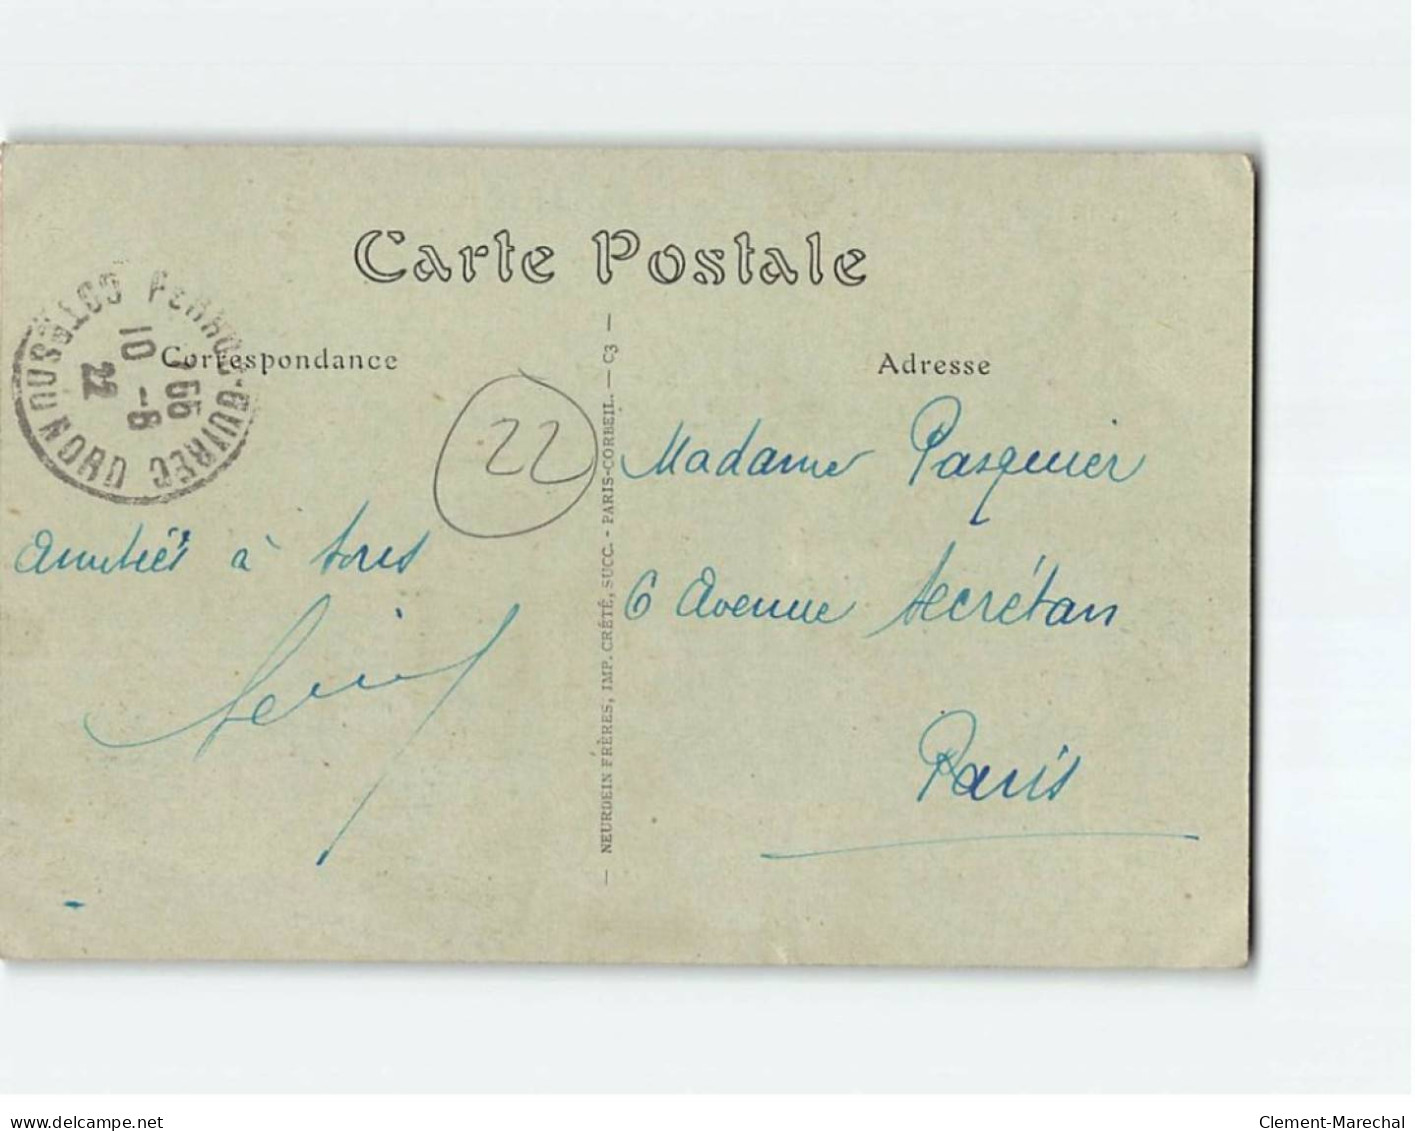 Carte Postale
Correspondance
Adresse
PERROS-GUIREC
COTES DU NORD
10 -6
22
22
Amitiés à tous
Madame Pasquier
6 Avenue Secrétan
Paris
— NEURDEIN FRÈRES, IMP. CRÉTÉ, SUCC. - PARIS-CORBEIL. — C3 —
delcampe.net
Clement-Marechal